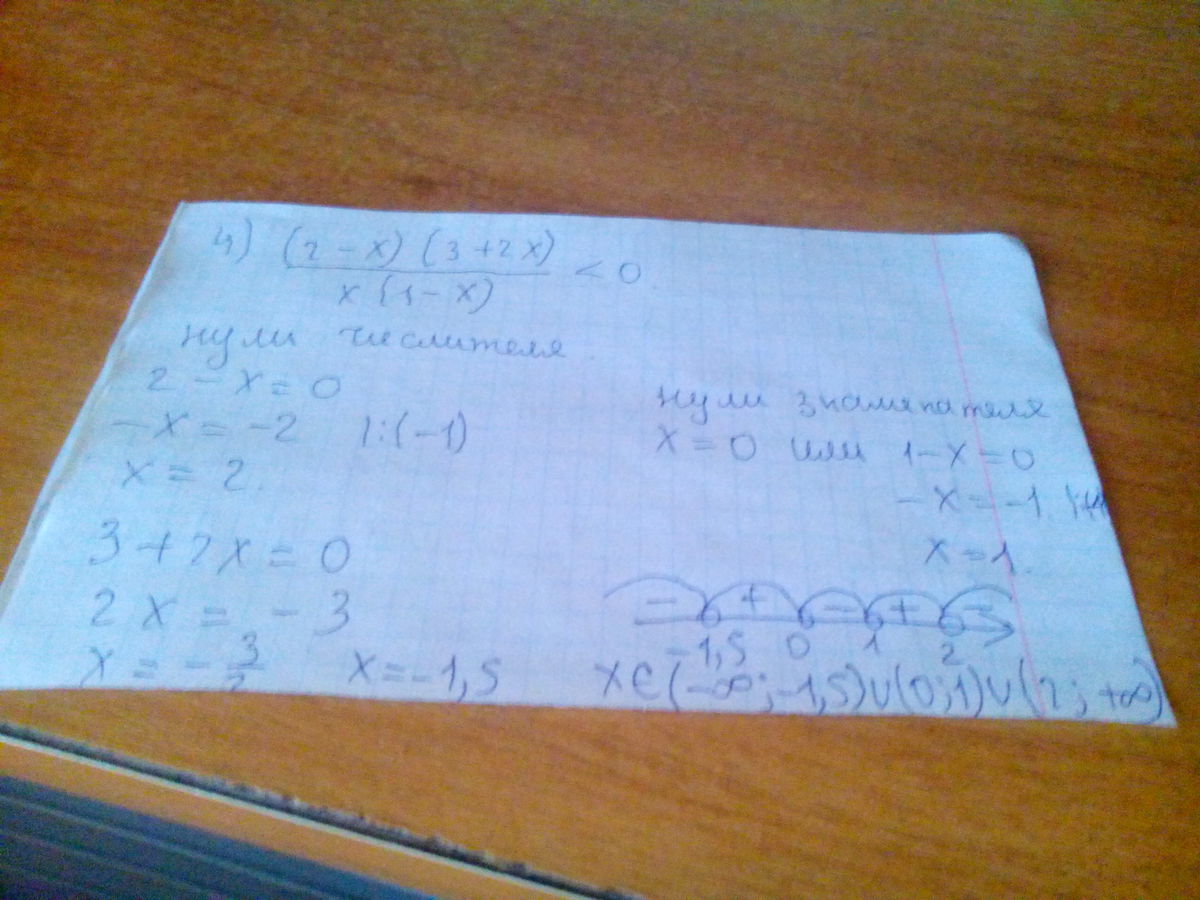 4) (2 - x) (3 + 2x)
x (1 - x)
< 0.
нули числителя.
2 - x = 0
-x = -2 |:(-1)
x = 2.
3 + 2x = 0
2x = -3
x = - 3/2 x = -1,5
нули знаменателя
x = 0 или 1 - x = 0
-x = -1
x = 1.
- + - + -
-1,5 0 1 2
x ∈ (-∞; -1,5) ∪ (0; 1) ∪ (2; +∞)